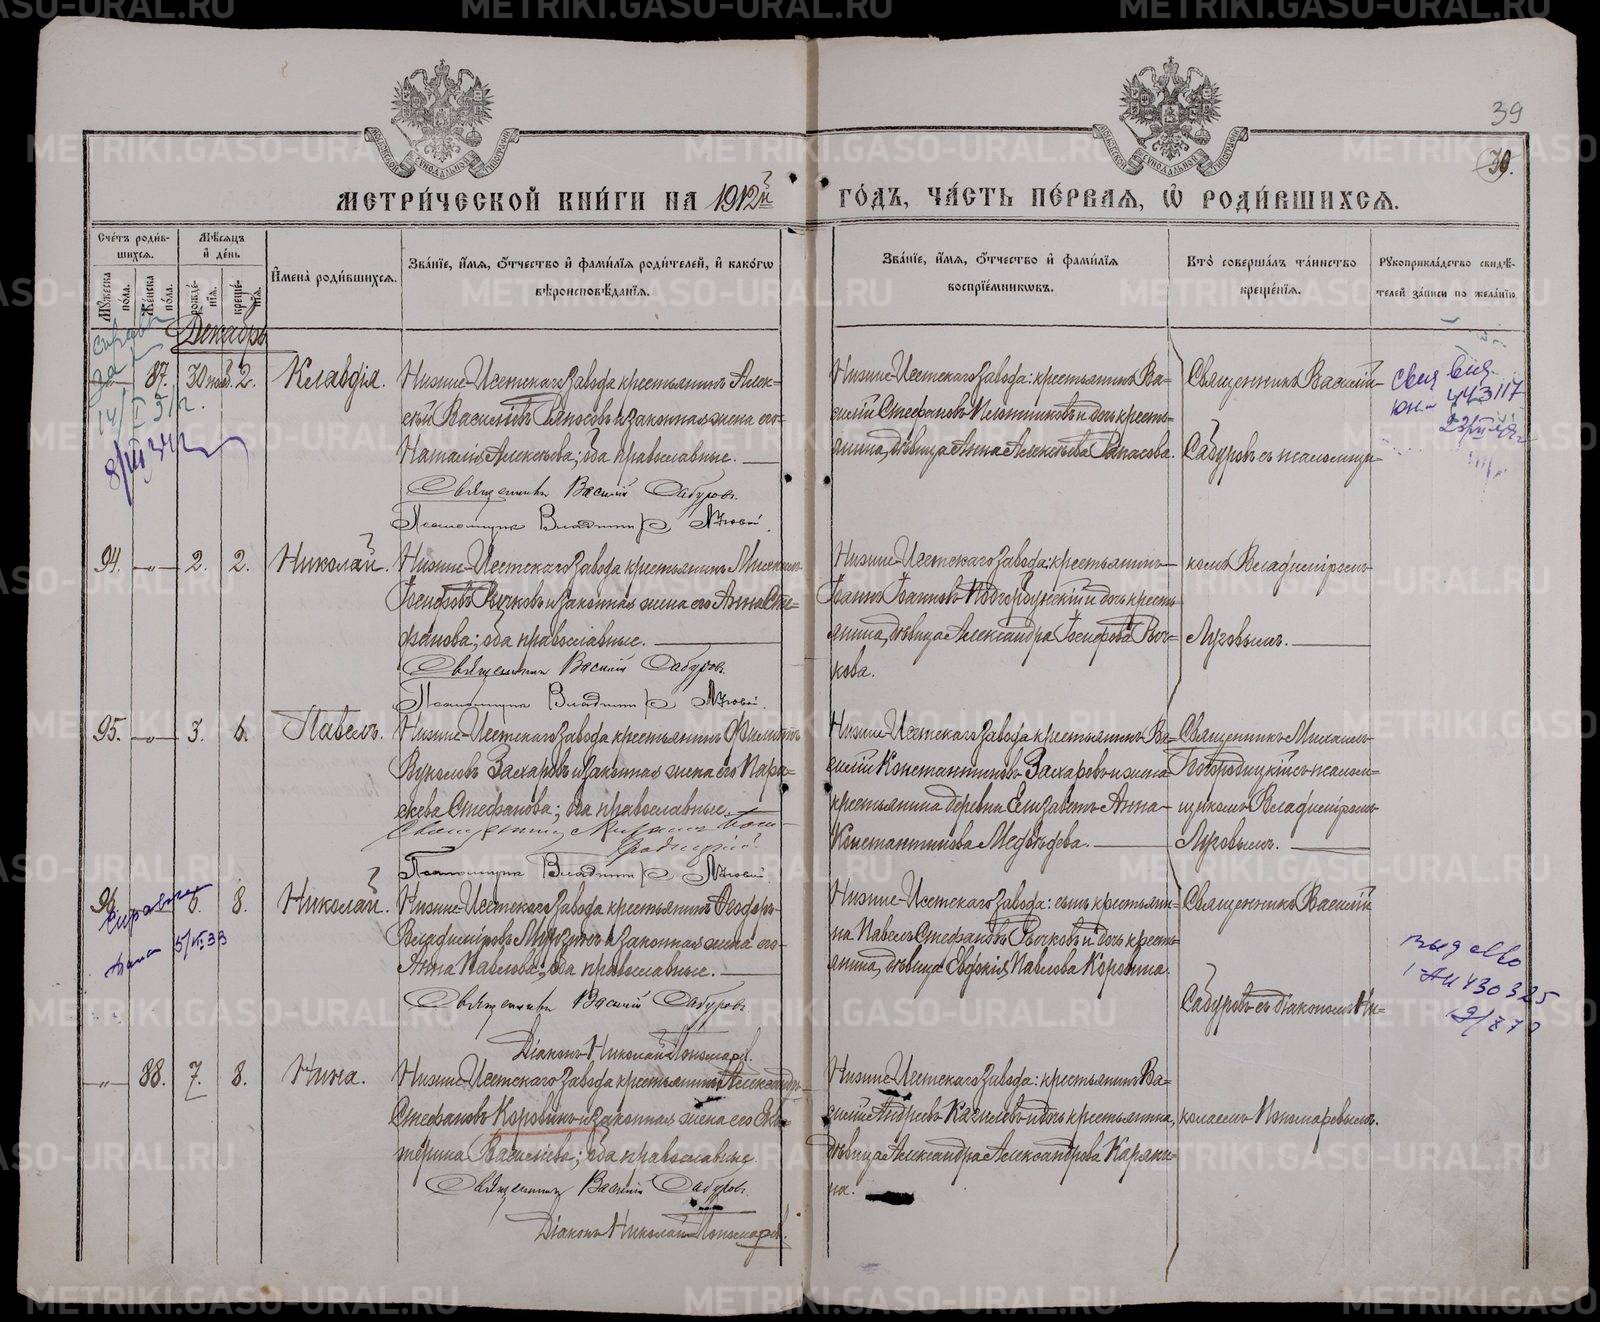 METRIKI.GASO-URAL.RU
39
30.
МЕТРИ́ЧЕСКОЙ КНИ́ГИ НА 1912й ГО́ДЪ, ЧА́СТЬ ПЕ́РВАЯ, Ѡ РОДИ́ВШИХСЯ.
Сче́тъ роди́в-
шихся.
Мѣ́сяцъ
и де́нь
Мꙋ́жеска
по́ла.
Же́нска
по́ла.
рожде́-
нія.
креще́-
нія.
И҆мена̀ роди́вшихся.
Зва́ніе, и҆́мя, ѻ҆́тчество и҆ фами́лія роди́телей, и҆ како́гѡ
вѣроисповѣ́данія.
Зва́ніе, и҆́мя, ѻ҆́тчество и҆ фами́лія
воспріе́мниковъ.
Кто̀ соверша́лъ та́инство
креще́нія.
Рꙋкоприкла́дство свидѣ́-
телей за́писи по жела́нію
Декабрь
87. 30 нояб. 2. Клавдія.
Низше-Исетскаго завода крестьянинъ Алек-
сѣй Васильевъ и законная жена его
Наталія Алексѣева; оба православные.
Священникъ Василій Сабуровъ.
Псаломщикъ Владиміръ Луговой.
Низше-Исетскаго завода: крестьянинъ Ва-
силій Стефановъ Плотниковъ и дочь кресть-
янина, дѣвица Анна Алексѣева
Священникъ Василій
Сабуровъ съ псаломщи-
94. -„- 2. 2. Николай.
Низше-Исетскаго завода крестьянинъ Михаилъ
Іосифовъ Рычковъ и законная жена его Анна Сте-
фанова; оба православные.
Священникъ Василій Сабуровъ.
Псаломщикъ Владиміръ Луговой.
Низше-Исетскаго завода: крестьянинъ
Іоаннъ Іоанновъ и дочь кресть-
янина, дѣвица Александра Іосифова Рыч-
кова.
комъ Владиміромъ
Луговымъ.
95. -„- 3. 6. Павелъ.
Низше-Исетскаго завода крестьянинъ Филиппъ
Вуколовъ Захаровъ и законная жена его Пара-
скева Стефанова; оба православные.
Священникъ Михаилъ Бого-
родицкій
Псаломщикъ Владиміръ Луговой.
Низше-Исетскаго завода крестьянинъ Ва-
силій Константиновъ Захаровъ и жена
крестьянина деревни Елизаветъ Анна
Константинова Медвѣдева.
Священникъ Михаилъ
Богородицкій съ псалом-
щикомъ Владиміромъ
Луговымъ.
96. 6. 8. Николай.
Низше-Исетскаго завода крестьянинъ Феодоръ
Владиміровъ и законная жена его
Анна Павлова; оба православные.
Священникъ Василій Сабуровъ.
Діаконъ Николай Пономаревъ.
Низше-Исетскаго завода: сынъ крестьяни-
на Павелъ Стефановъ Рычковъ и дочь кресть-
янина, дѣвица Евфимія Павлова Коровина.
Священникъ Василій
Сабуровъ съ діакономъ Ни-
-„- 88. 7. 8. Нина.
Низше-Исетскаго завода крестьянинъ Александръ
Стефановъ Коровинъ и законная жена его Ека-
терина Васильева; оба православные.
Священникъ Василій Сабуровъ.
Діаконъ Николай Пономаревъ.
Низше-Исетскаго завода: крестьянинъ Ва-
силій Андреевъ и дочь крестьянина,
дѣвица Александра Александрова Каряки-
на.
колаемъ Пономаревымъ.